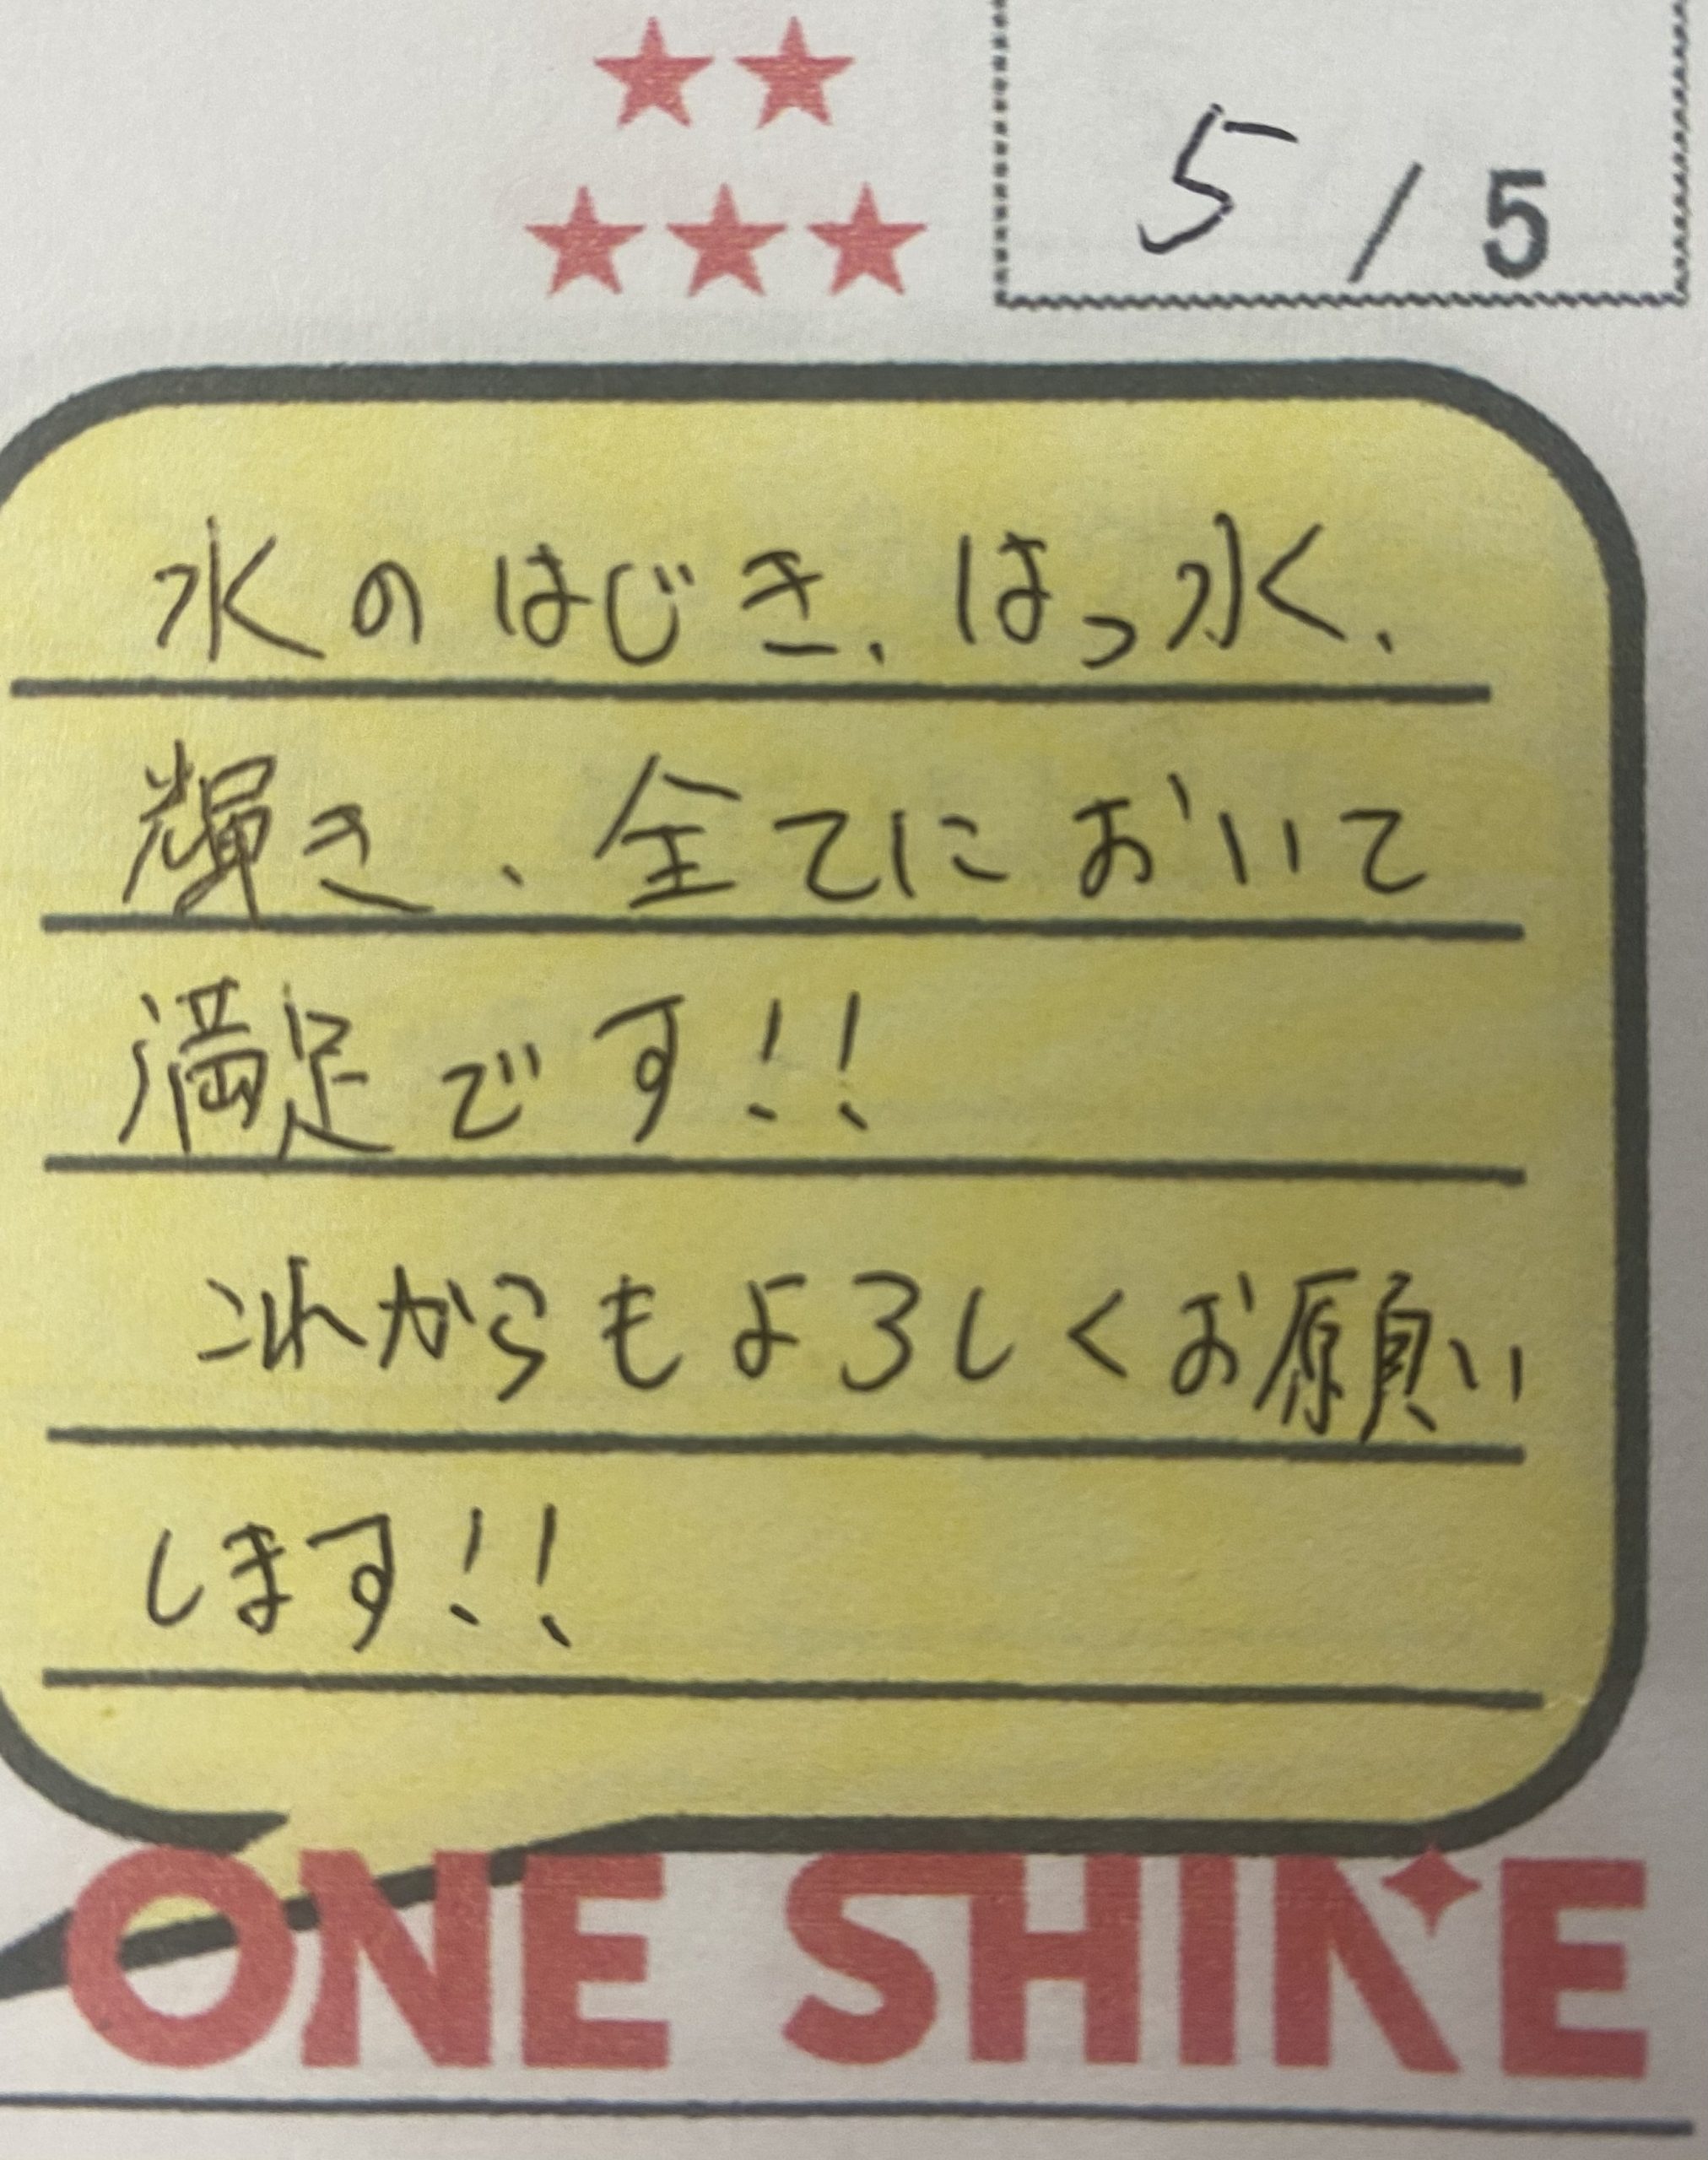 5 / 5
水のはじき、はっ水、
輝き、全てにおいて
満足です!!
これからもよろしくお願い
します!!
ONE SHINE